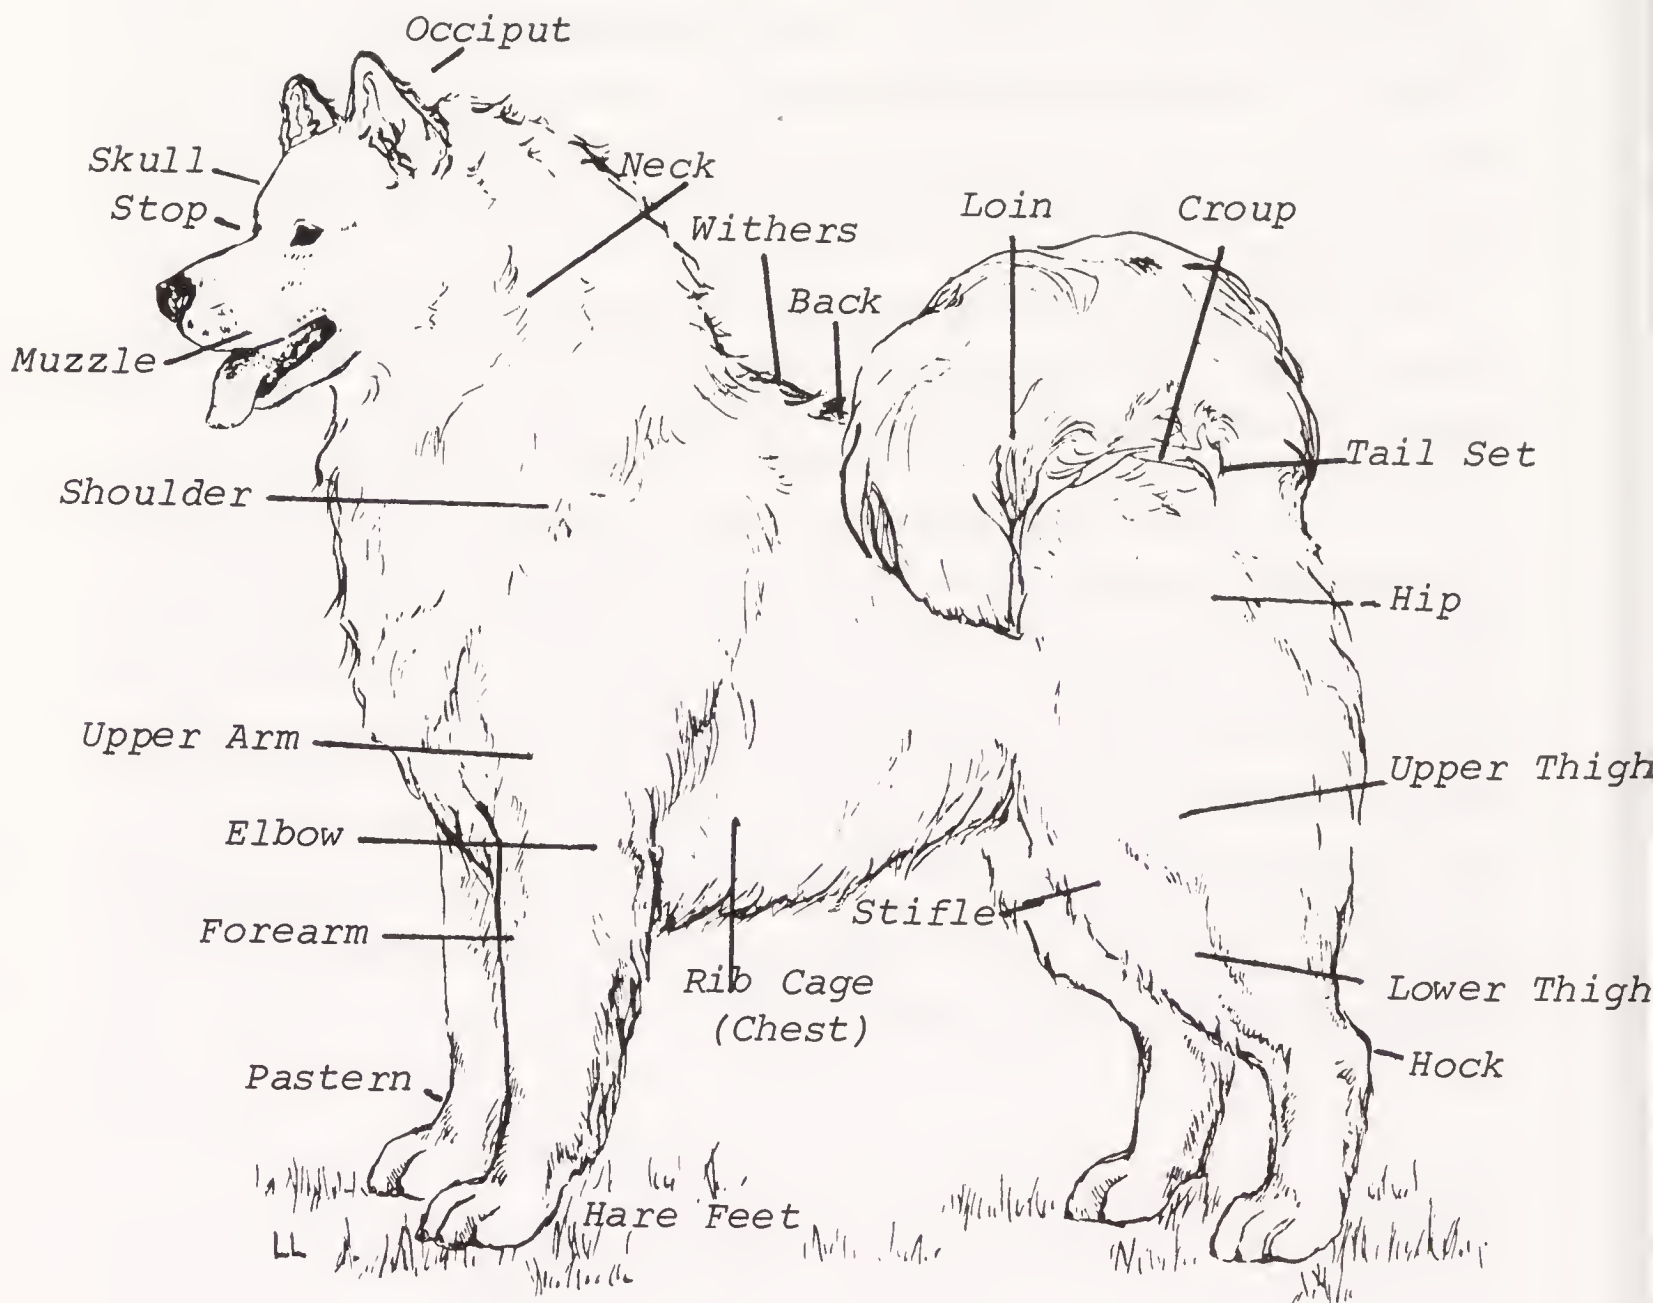 Occiput
Skull
Neck
Stop
Withers
Loin
Croup
Back
Muzzle
Tail Set
Shoulder
Hip
Upper Arm
Upper Thigh
Elbow
Stifle
Forearm
Rib Cage
(Chest)
Lower Thigh
Hock
Pastern
Hare Feet
LL